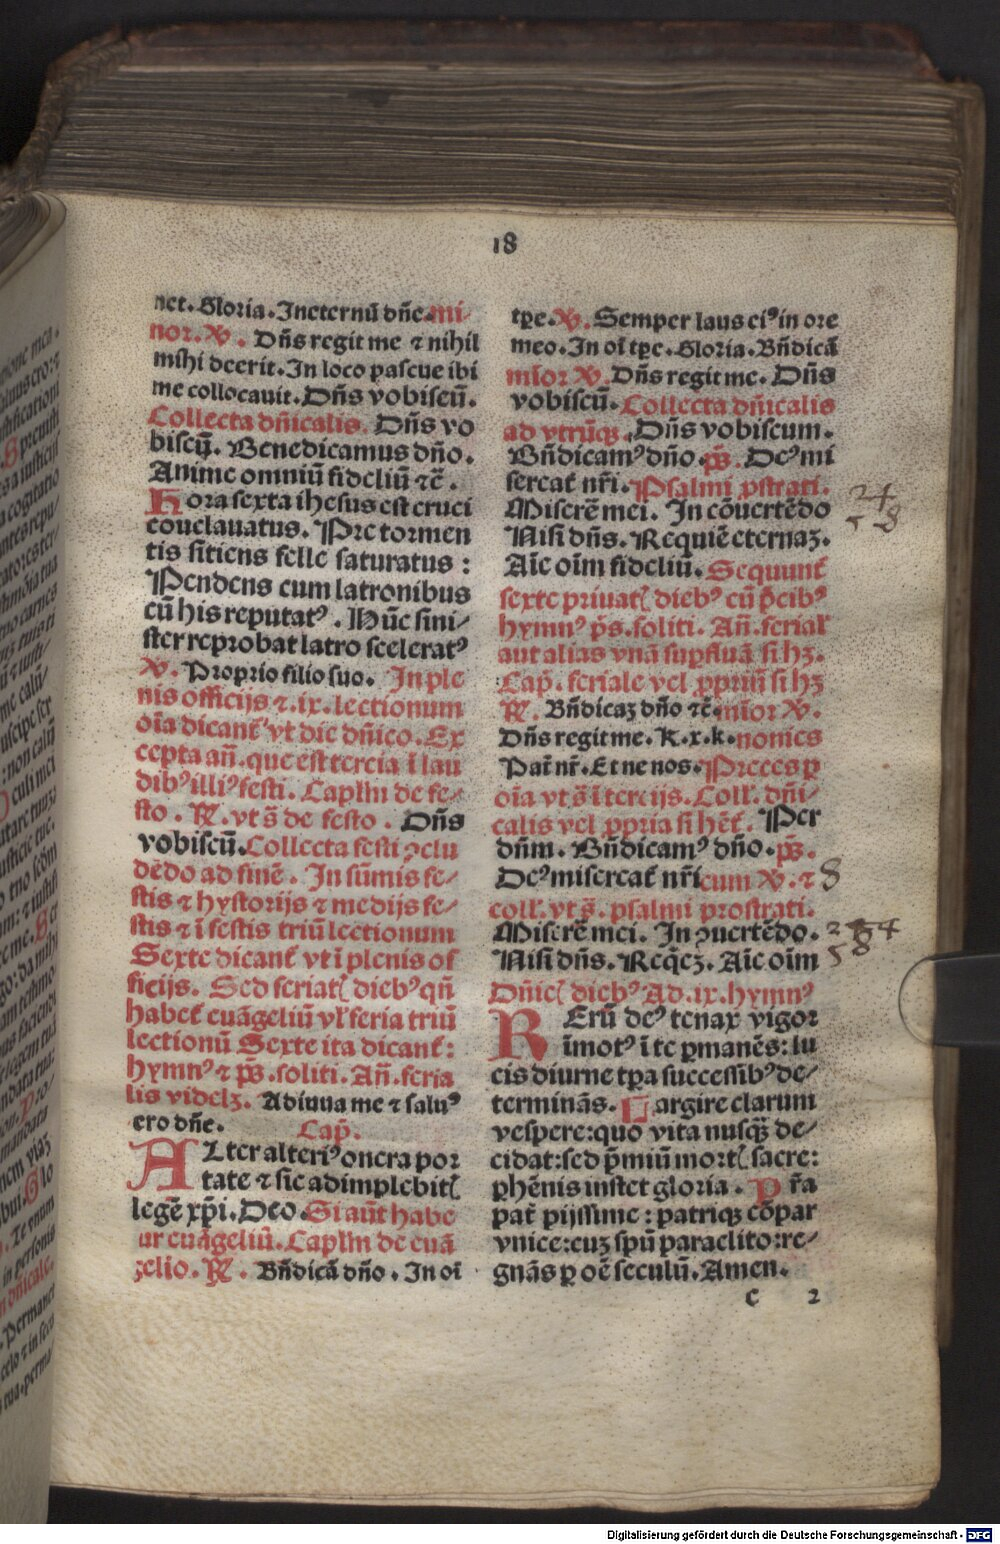 18
net. Gloria. In eternū dn̄e. mi⸗
nor. V̷. Dn̄s regit me ⁊ nihil
mihi deerit. In loco pascue ibi
me collocauit. Dn̄s vobiscū.
Collecta dn̄icalis. Dn̄s vo
biscū. Benedicamus dn̄o.
Anime omniū fideliū ⁊c̄.
Hora sexta ihesus est cruci
conclauatus. Pre tormen
tis sitiens felle saturatus:
Pendens cum latronibus
cū his reputatꝰ. Hūc sini⸗
ster reprobat latro sceleratꝰ
V̷. Proprio filio suo. In ple
nis officijs ⁊ .ix. lectionum
oīa dicant̄ vt die dn̄ico. Ex
cepta an̄. que est tercia ī lau
dibꝰ illiꝰ festi. Caplm de fe⸗
sto. R̷. vt s̄ de festo. Dn̄s
vobiscū. Collecta festi ꝯclu
dēdo ad finē. In sūmis fe⸗
stis ⁊ hystorijs ⁊ medijs fe⸗
stis ⁊ ī festis triū lectionum
Sexte dicant̄ vt ī plenis of
ficijs. Sed feriatꝭ diebꝰ qn̄
habet̄ euāgeliū vl̄ feria triū
lectionū Sexte ita dicant̄:
hymnꝰ ⁊ ps̄. soliti. An̄. feria
lis videlꝫ. Adiuua me ⁊ saluꝰ
ero dn̄e. Cap̄.
ALter alteriꝰ onera por
tate ⁊ sic adimplebitꝭ
legē xp̄i. Deo. Si aūt habe
ur euāgeliū. Caplm de euā
gelio. R̷. Bn̄dicā dn̄o. In oī
tp̄e. V̷. Semper laus eiꝰ in ore
meo. In oī tp̄e. Gloria. Bn̄dicā
mīor V̷. Dn̄s regit me. Dn̄s
vobiscū. Collecta dn̄icalis
ad vtrūqꝫ. Dn̄s vobiscum.
Bn̄dicamꝰ dn̄o. ps̄. Deꝰ mi
sereat̄ nr̄i. Psalmi ꝓstrati.
Miserē mei. In cōuertēdo
Nisi dn̄s. Requiē eternaꝫ.
Aīe oīm fideliū. Sequunt̄
sexte priuatꝭ diebꝰ cū p̄cibꝰ
hymnꝰ ps̄. soliti. An̄. ferial̄
aut alias vnā suꝑfluā si hꝫ.
Cap̄. feriale vel ꝓpriū si hꝫ
R̷. Bn̄dicaꝫ dn̄o ⁊c̄. mīor V̷.
Dn̄s regit me. K. x. k. nonies
Pat̄ nr̄. Et ne nos. Preces ꝑ
oīa vt s̄ ī tercijs. Coll̄. dn̄i⸗
calis vel ꝓpria si hēt̄. Per
dn̄m. Bn̄dicamꝰ dn̄o. ps̄.
Deꝰ misereat̄ nr̄i cum V̷. ⁊
coll̄. vt s̄. psalmi prostrati.
Miserē mei. In ꝯuertēdo.
Nisi dn̄s. Req̄ēꝫ. Aīe oīm
Dn̄icꝭ diebꝰ Ad .ix. hymnꝰ
RErū deꝰ tenax vigor
īmotꝰ ī te ꝑmanēs: lu
cis diurne tꝑa successibꝰ de⸗
terminās. Largire clarum
vespere: quo vita nusqꝫ̄ de⸗
cidat: sed p̄miū mortꝭ sacre:
ꝑhēnis instet gloria. Pr̄a
pat̄ pijssime: patriqꝫ cōpar
vnice: cuꝫ spū paraclito: re⸗
gnās ꝑ oē seculū. Amen.
c 2
8
Digitalisierung gefördert durch die Deutsche Forschungsgemeinschaft - DFG